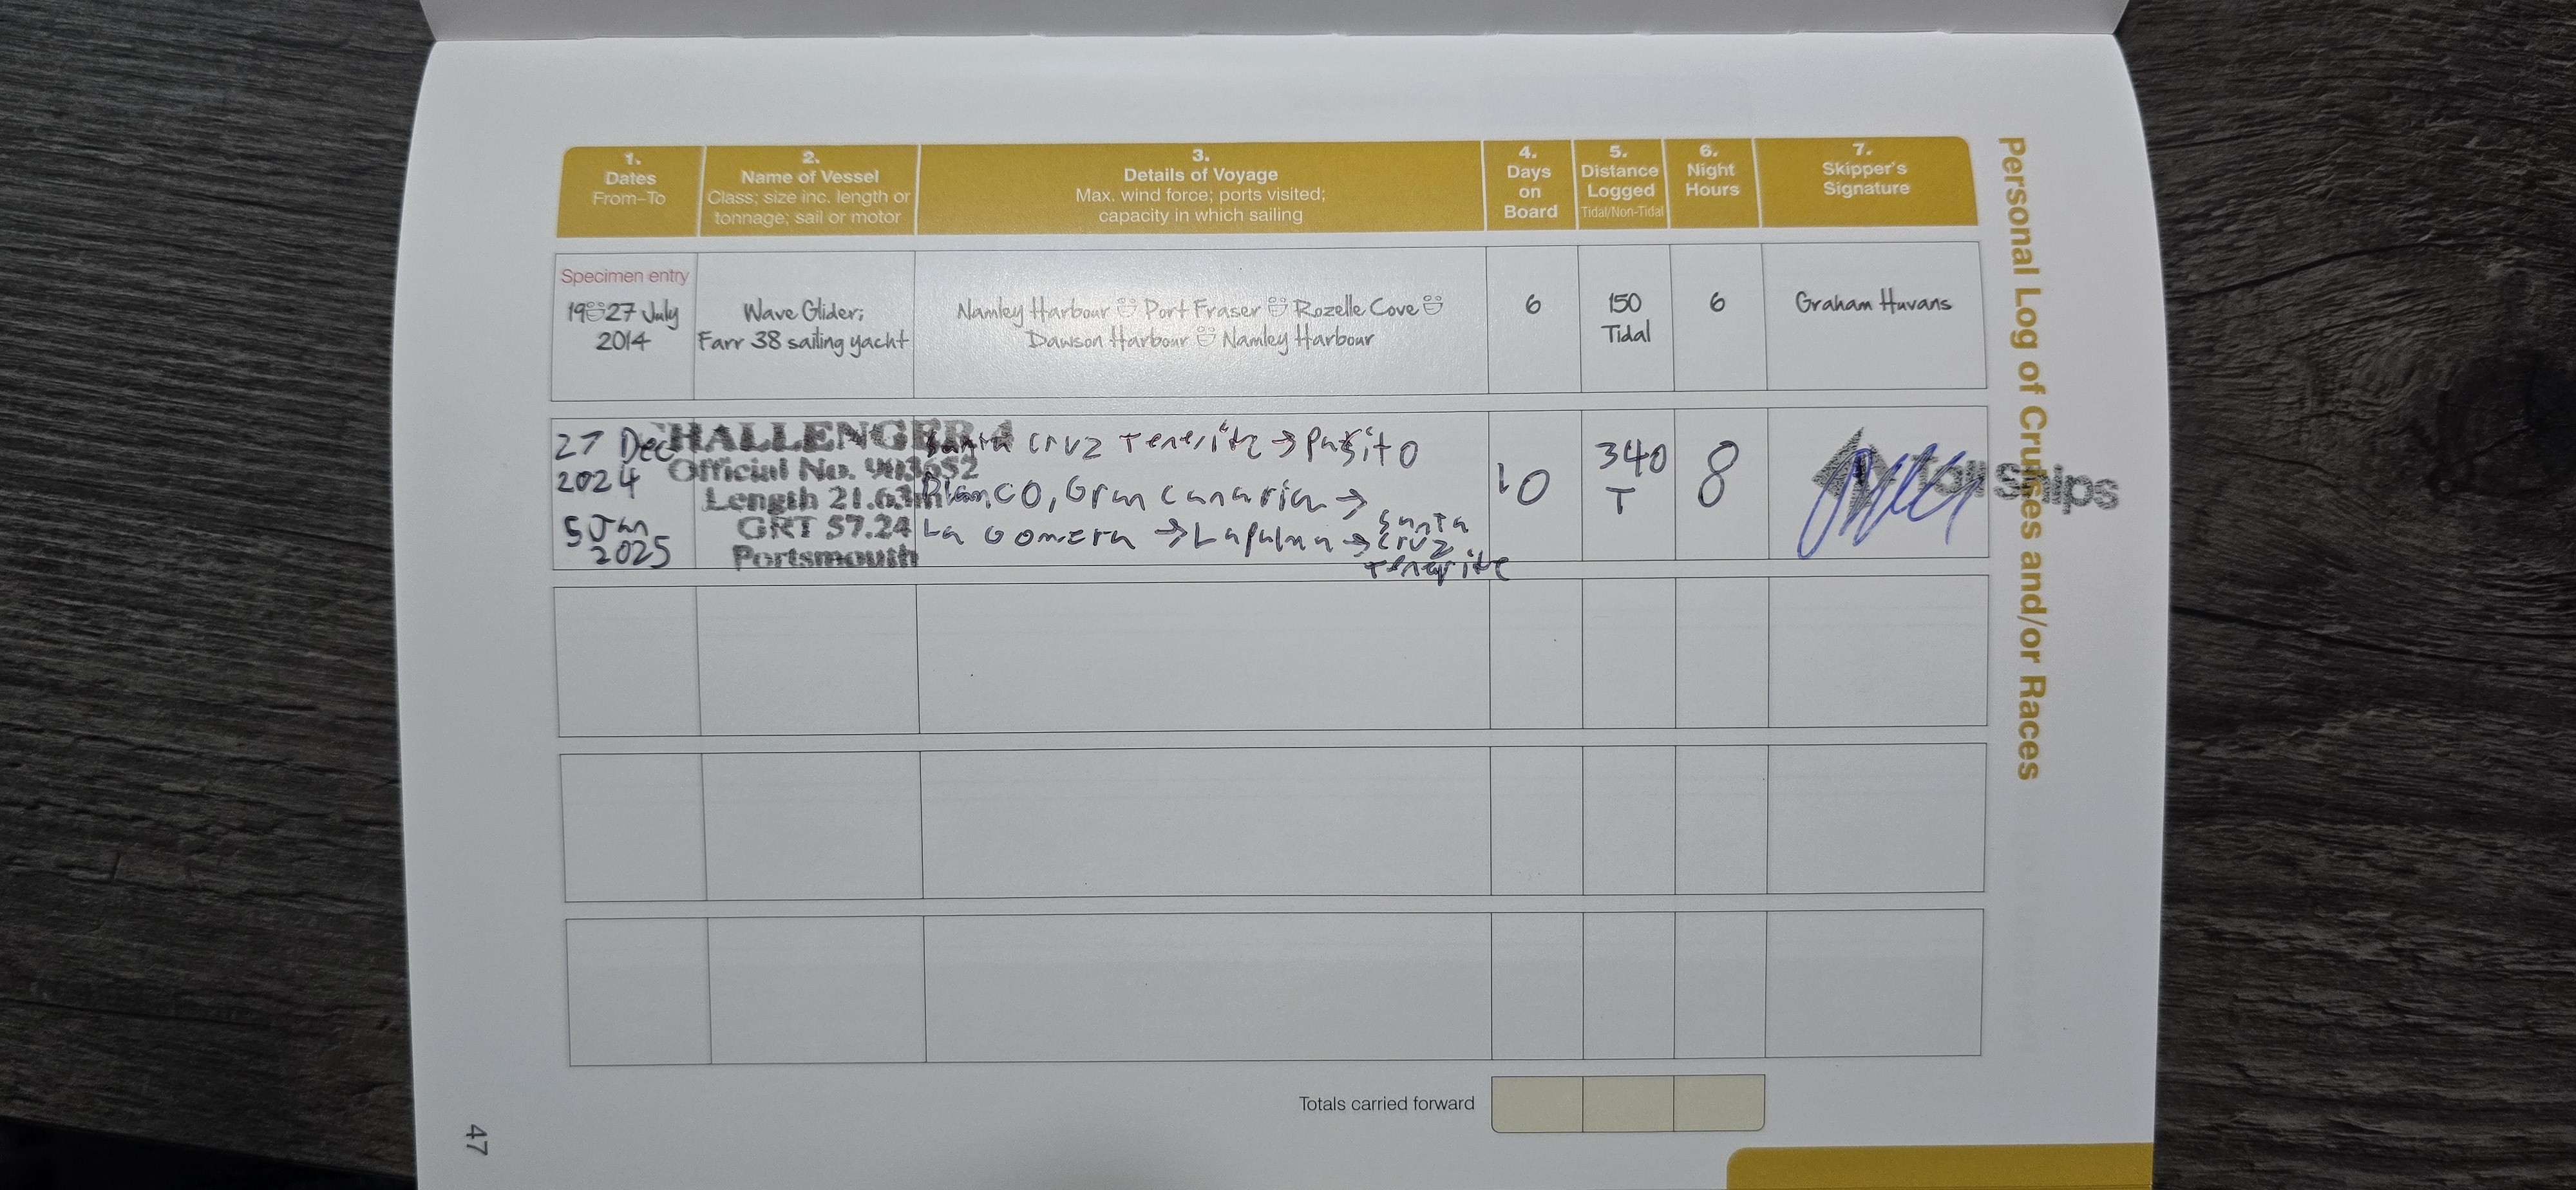 Personal Log of Cruises and/or Races
1.
Dates
From–To
2.
Name of Vessel
Class; size inc. length or
tonnage; sail or motor
3.
Details of Voyage
Max. wind force; ports visited;
capacity in which sailing
4.
Days
on
Board
5.
Distance
Logged
Tidal/Non-Tidal
6.
Night
Hours
7.
Skipper's
Signature
Specimen entry
19 27 July
2014
Wave Glider;
Farr 38 sailing yacht
Namley Harbour Port Fraser Rozelle Cove
Dawson Harbour Namley Harbour
6
150
Tidal
6
Graham Huvans
27 Dec
2024
5 Jan
2025
CHALLENGER
Official No.
Length 21.
GRT 57.24
Portsmouth
Santa Cruz Tenerife → Pasito
Blanco, Gran Canaria →
La Gomera → La palma → Santa
Cruz
Tenerife
10
340
T
8
Ships
Totals carried forward
47